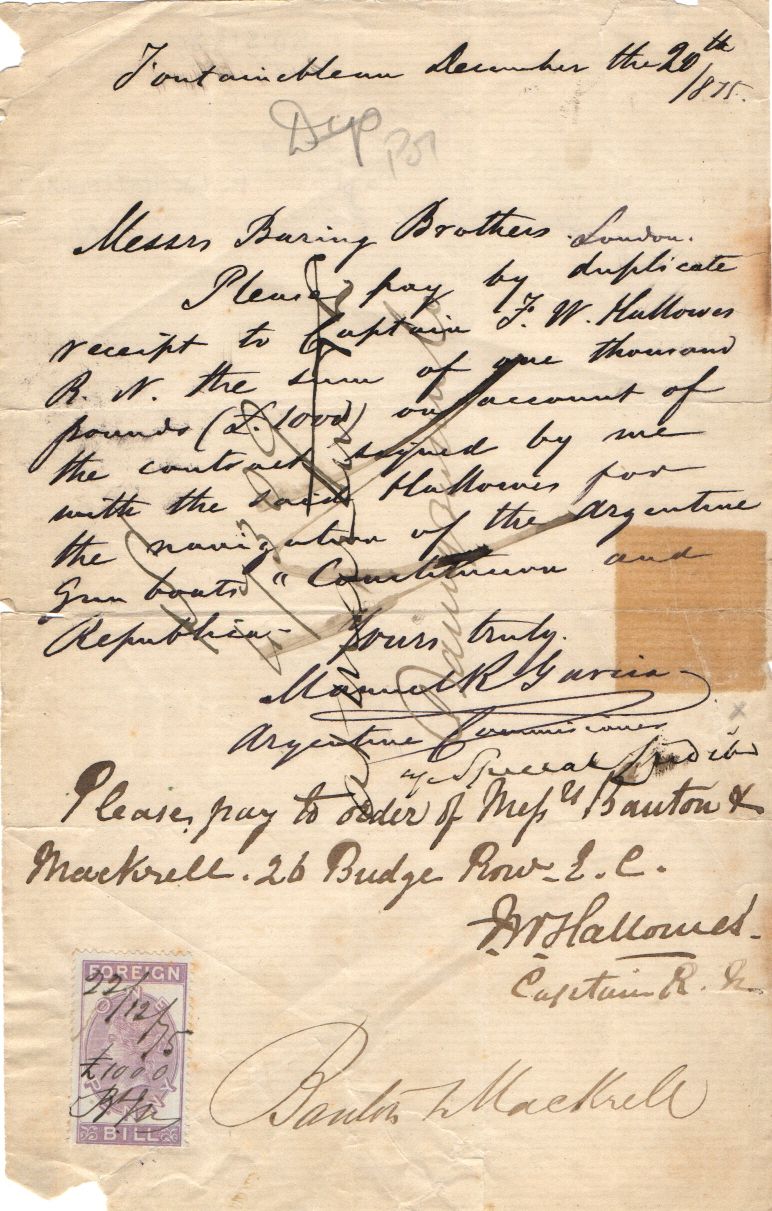 Fontainebleau December the 20th
1875.
Dup
Messrs Baring Brothers. London.
Please pay by duplicate
receipt to Captain F. W. Hallowes
R. N. the sum of one thousand
pounds (£. 1000) on account of
the contract signed by me
with the said Hallowes for
the navigation of the Argentine
Gun boats "Constitucion and
Republica- Yours truly.
Manuel R Garcia
Argentine Commissioner
Special Credit
Please pay to order of Messrs Banton &
Mackrell. 26 Budge Row. E. C.
FWHallowes.
Captain R. N.
FOREIGN
ONE
22/12/75
£1000
BILL
Banton & Mackrell